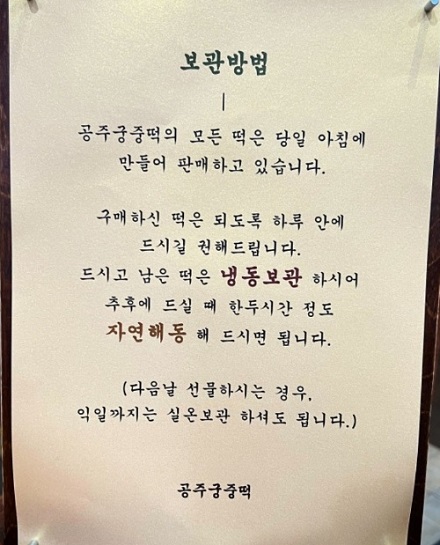 보관방법
공주궁중떡의 모든 떡은 당일 아침에
만들어 판매하고 있습니다.
구매하신 떡은 되도록 하루 안에
드시길 권해드립니다.
드시고 남은 떡은 냉동보관 하시어
추후에 드실 때 한두시간 정도
자연해동 해 드시면 됩니다.
(다음날 선물하시는 경우,
익일까지는 실온보관 하셔도 됩니다.)
공주궁중떡